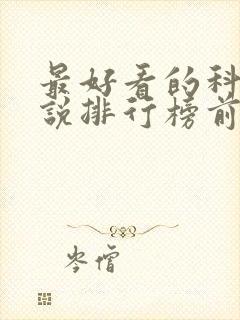 最好看的科
說排行榜前
岑僧